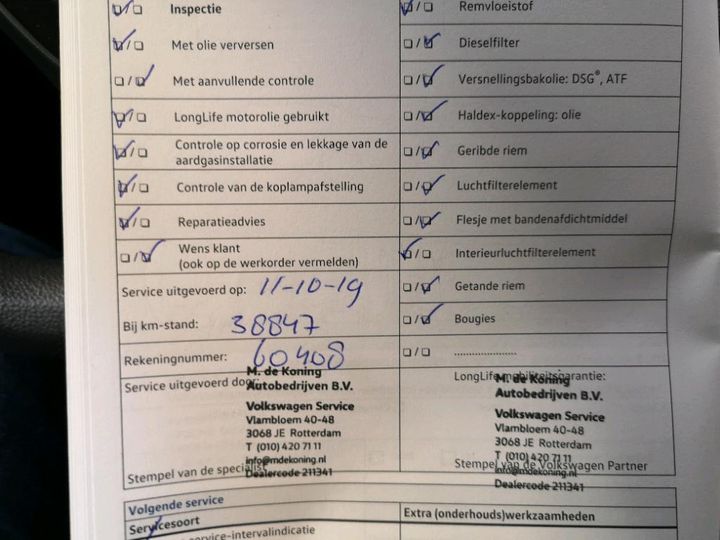 Inspectie
Met olie verversen
Met aanvullende controle
LongLife motorolie gebruikt
Controle op corrosie en lekkage van de
aardgasinstallatie
Controle van de koplampafstelling
Reparatieadvies
Wens klant
(ook op de werkorder vermelden)
Service uitgevoerd op: 11-10-19
Bij km-stand: 38847
Rekeningnummer: 60408
Service uitgevoerd door:
M. de Koning
Autobedrijven B.V.
Volkswagen Service
Vlambloem 40-48
3068 JE Rotterdam
T (010) 420 71 11
info@mdekoning.nl
Dealercode 211341
Stempel van de specialist
Remvloeistof
Dieselfilter
Versnellingsbakolie: DSG®, ATF
Haldex-koppeling: olie
Geribde riem
Luchtfilterelement
Flesje met bandenafdichtmiddel
Interieurluchtfilterelement
Getande riem
Bougies
.....................
LongLife mobiliteitsgarantie:
M. de Koning
Autobedrijven B.V.
Volkswagen Service
Vlambloem 40-48
3068 JE Rotterdam
T (010) 420 71 11
info@mdekoning.nl
Dealercode 211341
Stempel van de Volkswagen Partner
Volgende service
Servicesoort
Extra (onderhouds)werkzaamheden
service-intervalindicatie